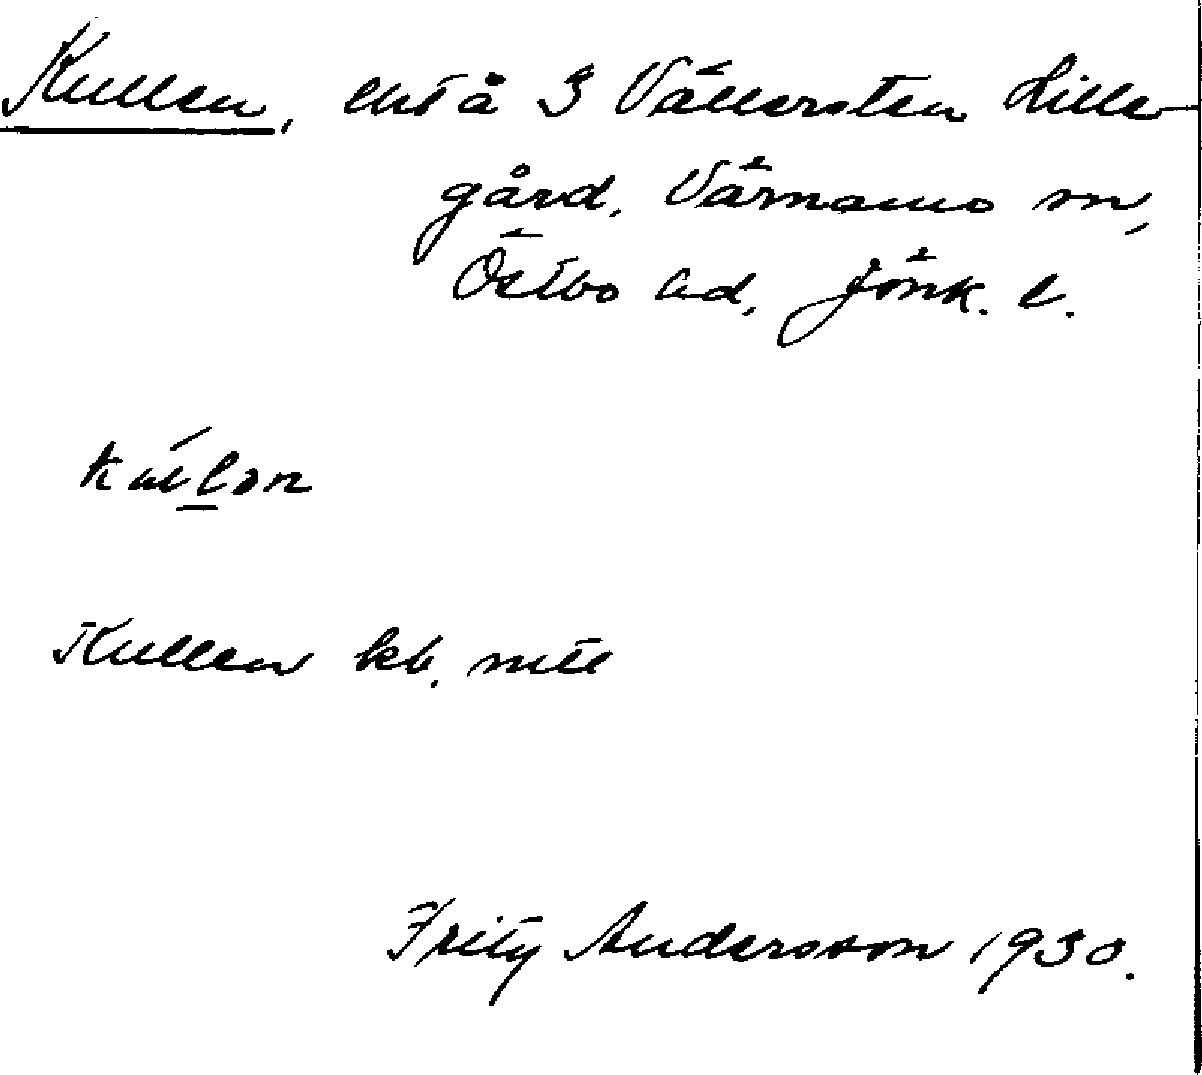 Kullen, lht å 3 Vällersten Lille-
gård, Värnamo sn,
Östbo hd, Jönk. l.
Kullen kb. mtl
Fritz Andersson 1930.